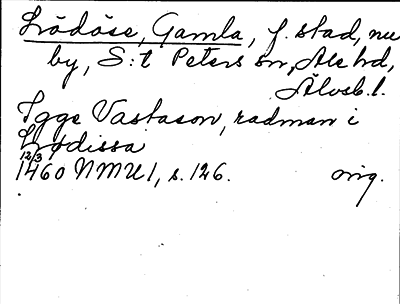 Lödöse, Gamla, f. stad, nu
by, S:t Peters sn, Ale hd,
Älvsb. l.
Tgge Vastason, radman i
Lydissa
12/3
1460 NMU 1, s. 126. orig.